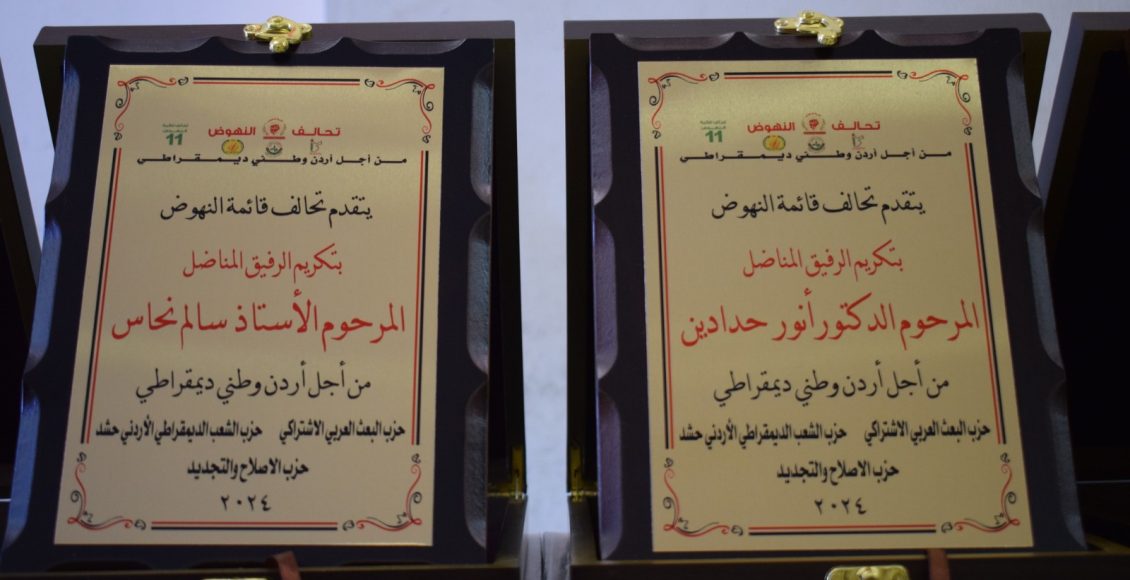 تحالف النهوض
11
من أجل أردن وطني ديمقراطي
يتقدم تحالف قائمة النهوض
بتكريم الرفيق المناضل
المرحوم الأستاذ سالم نحاس
من أجل أردن وطني ديمقراطي
حزب البعث العربي الاشتراكي حزب الشعب الديمقراطي الأردني حشد
حزب الاصلاح والتجديد
٢٠٢٤
تحالف النهوض
11
من أجل أردن وطني ديمقراطي
يتقدم تحالف قائمة النهوض
بتكريم الرفيق المناضل
المرحوم الدكتور أنور حدادين
من أجل أردن وطني ديمقراطي
حزب البعث العربي الاشتراكي حزب الشعب الديمقراطي الأردني حشد
حزب الاصلاح والتجديد
٢٠٢٤